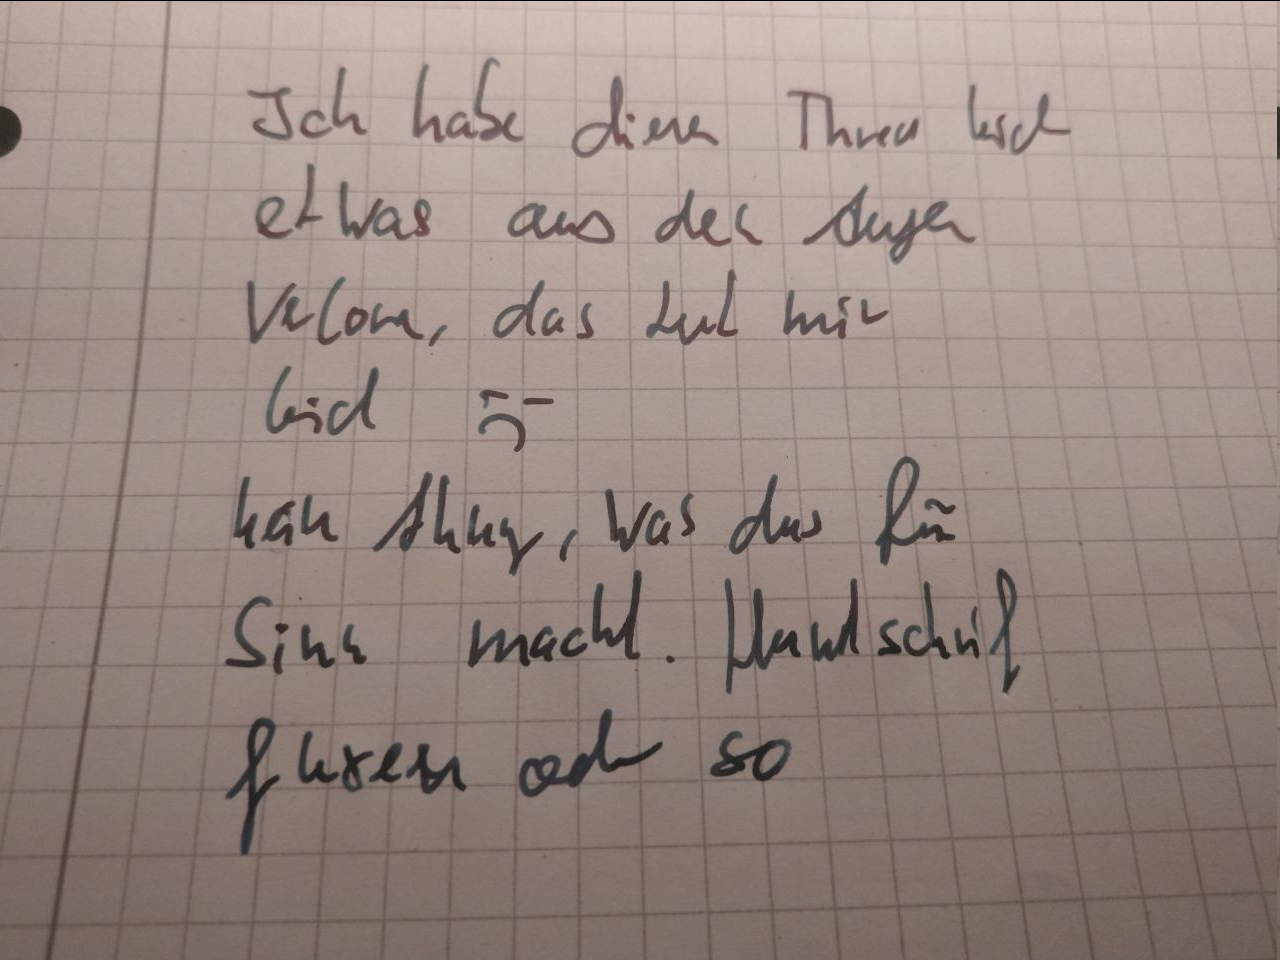 Ich habe diesen Thread leider
etwas aus den Augen
verloren, das tut mir
leid :-(
kein Ahnung, was das für
Sinn macht. Handschrift
flexen oder so